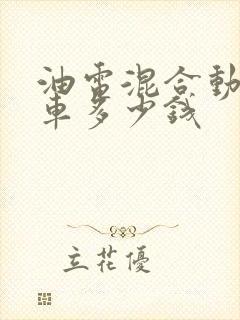 油電混合動
車多少錢
立花優